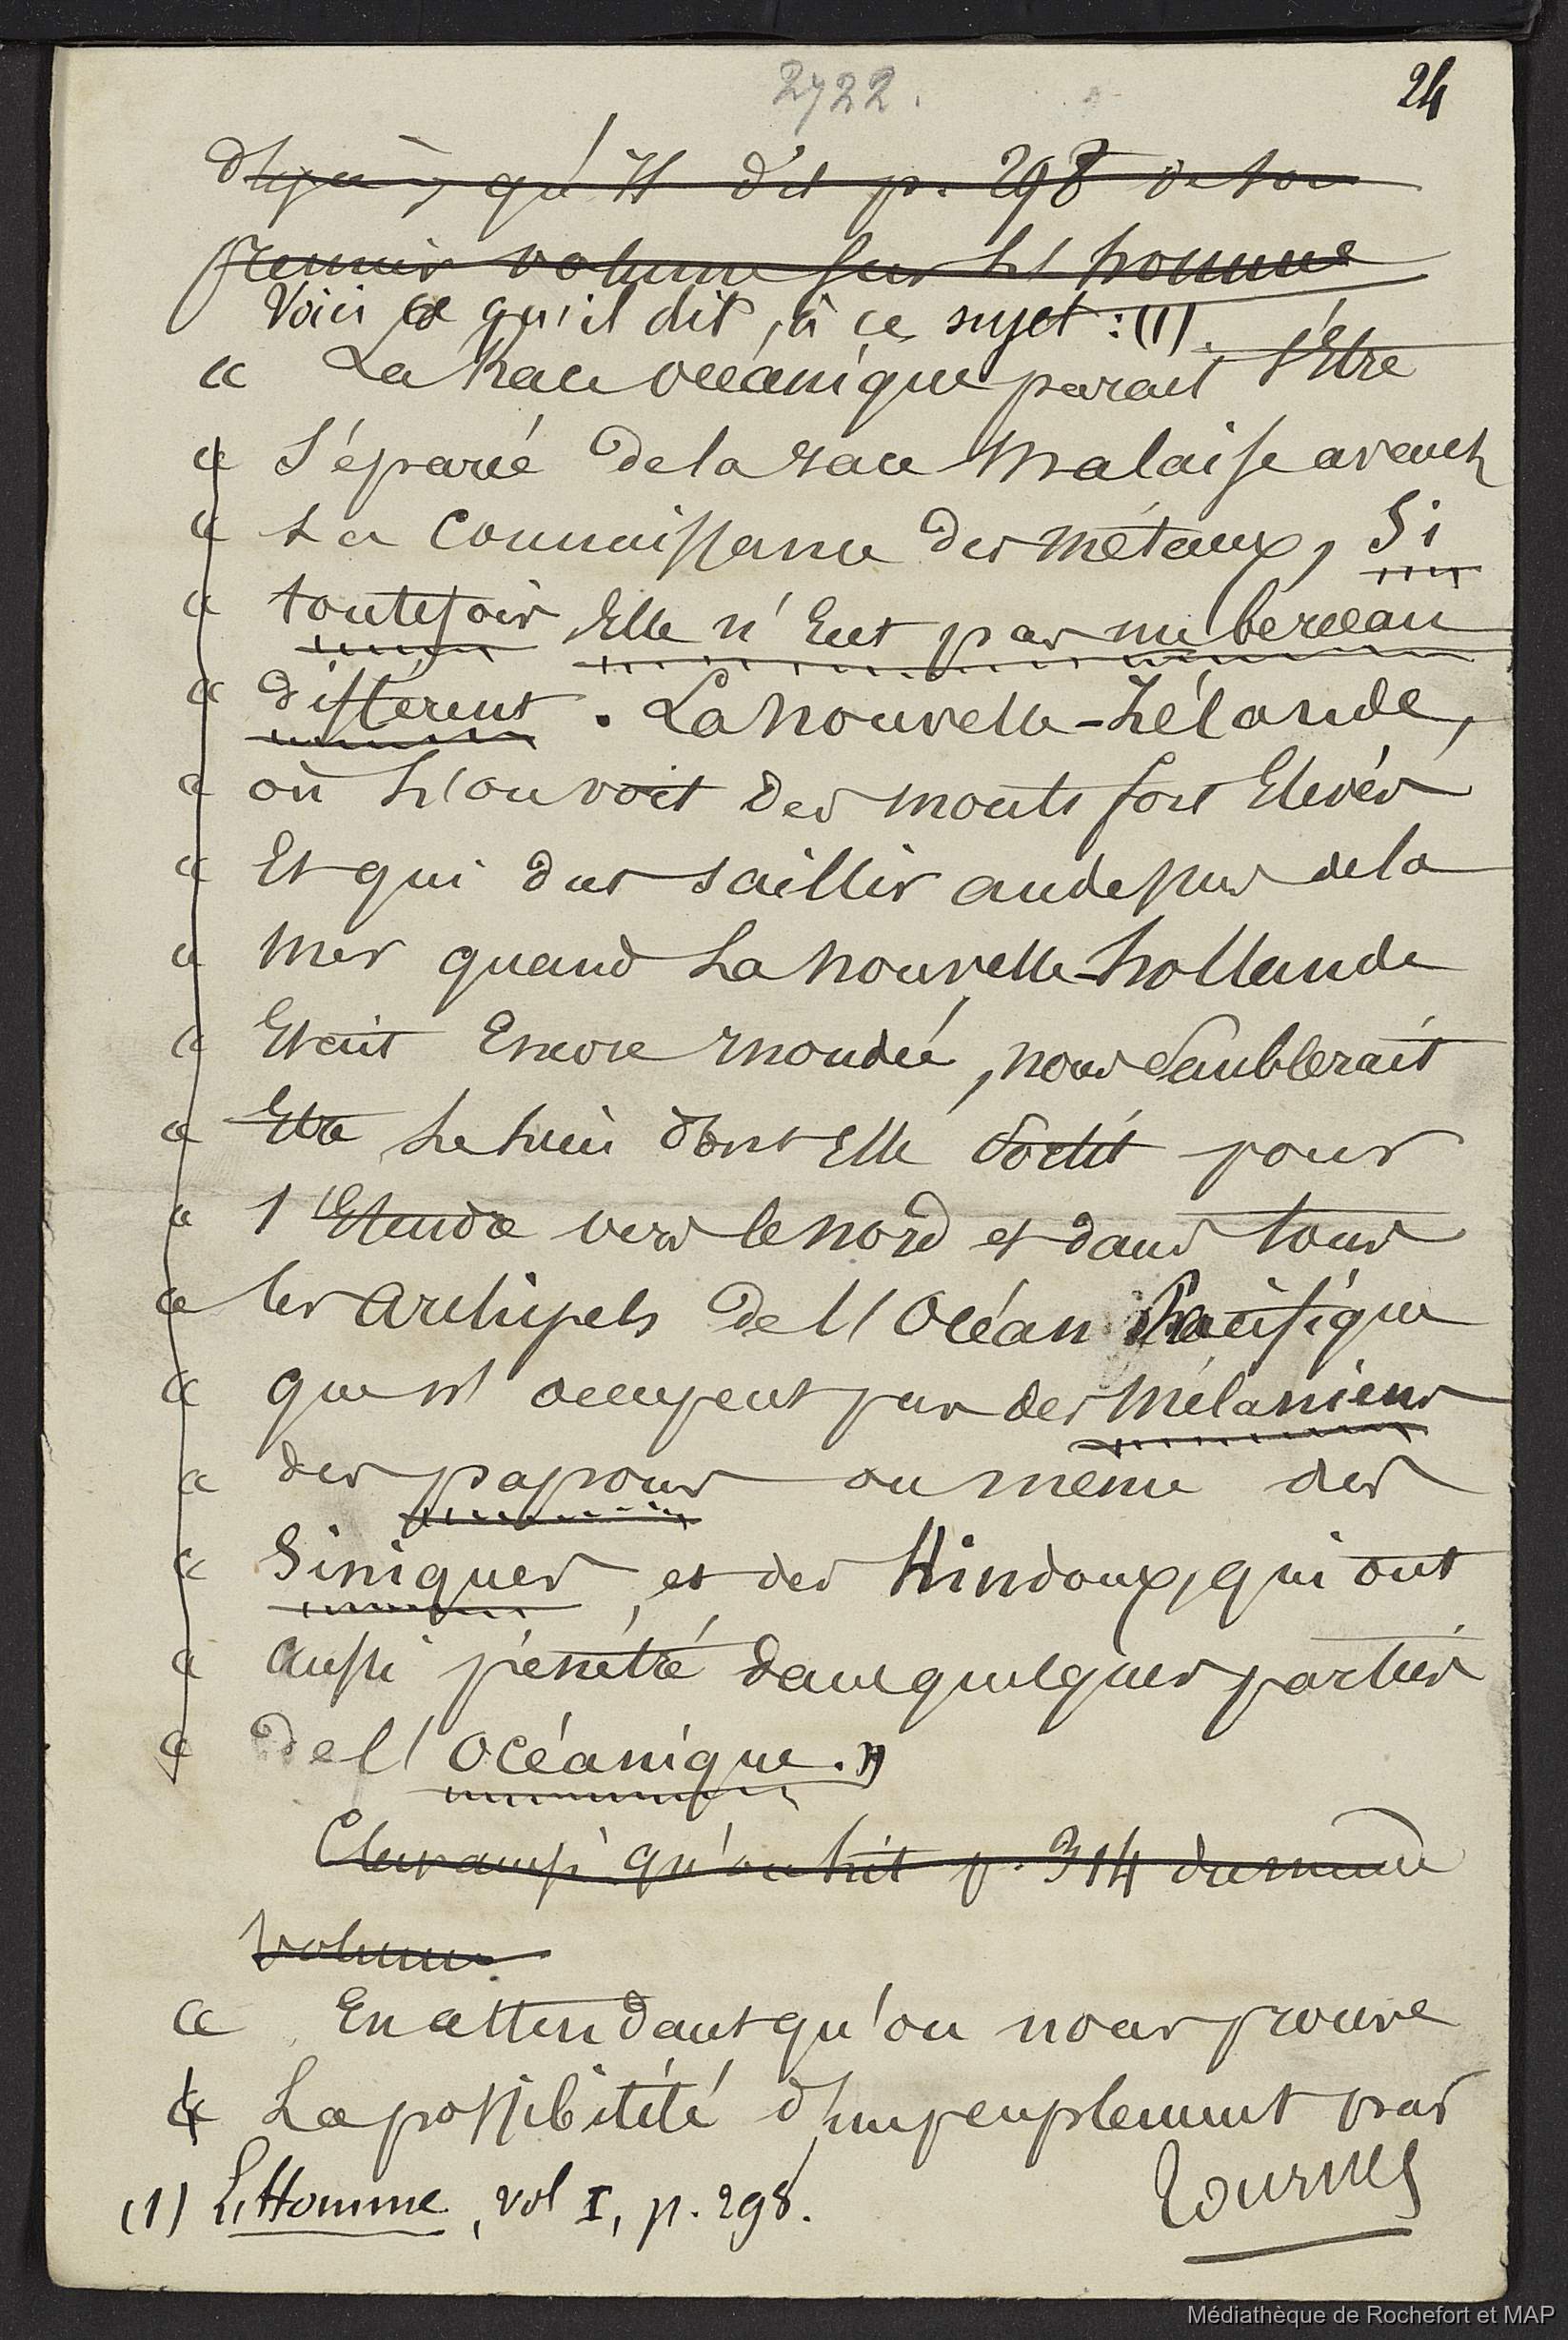 2722.
24
qu'il dit p. 298 de son
premier volume sur l'homme
Voici ce qu'il dit, à ce sujet : (1).
« La Race océanique parait s'Etre
« Séparée de la race Malaise avant
« La Connaissance des métaux, Si
« toutefois Elle n'Eut pas un berceau
« différent. La nouvelle-Zélande,
« où l'on voit des monts fort Elevés
« Et qui dut saillir audessus de la
« Mer quand La nouvelle-hollande
« Etait Encore inondée, nous Semblerait
« Etre Le lieu dont Elle Sortit pour
« s'Etendre vers le nord et dans tous
« les Archipels de l'Océan Pacifique
« que n'occupent pas des Mélaniens
« des papous ou même des
« Siniques, et des Hindoux, qui ont
« aussi pénétré dans quelques parties
« de l'Océanique. »
qu'on lit p. 314 du même
volume.
« En attendant qu'on nous prouve
« La possibilité d'un peuplement par
Tournes
(1) L'Homme, vol I, p. 298.
Médiathèque de Rochefort et MAP